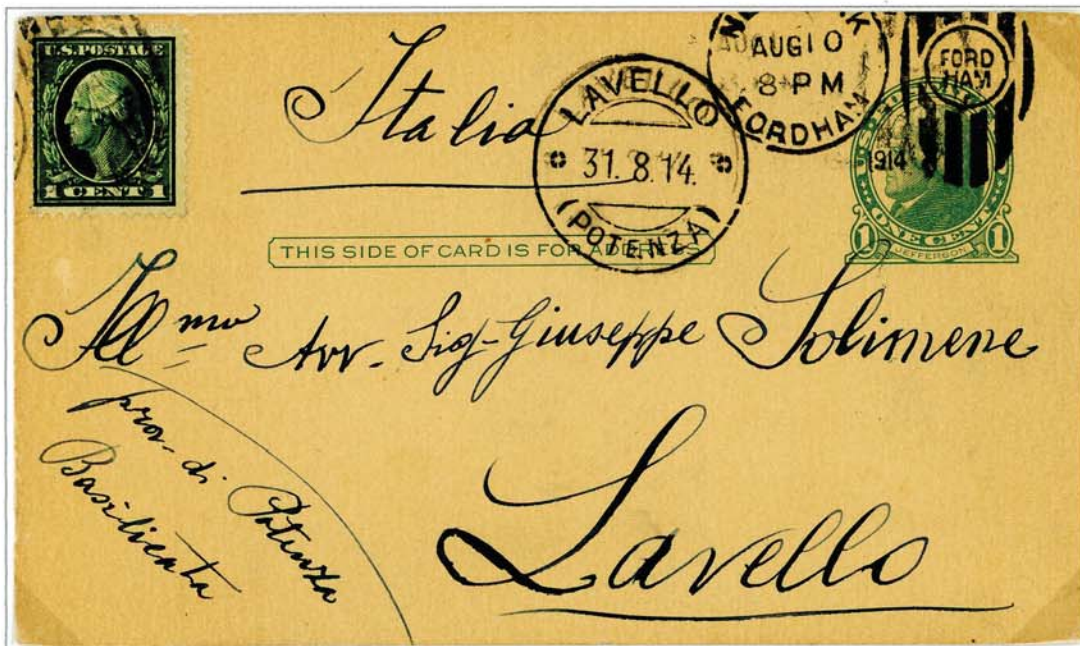 U.S. POSTAGE
1 CENT 1
Italia
LAVELLO
31.8.14.
(POTENZA)
AUG 10
8-PM
FORDHAM
1914
FORD
HAM
ONE CENT
1 1
JEFFERSON
THIS SIDE OF CARD IS FOR ADDRESS
Illmo Avv. Sig. Giuseppe Solimene
Lavello
prov. di Potenza
Basilicata